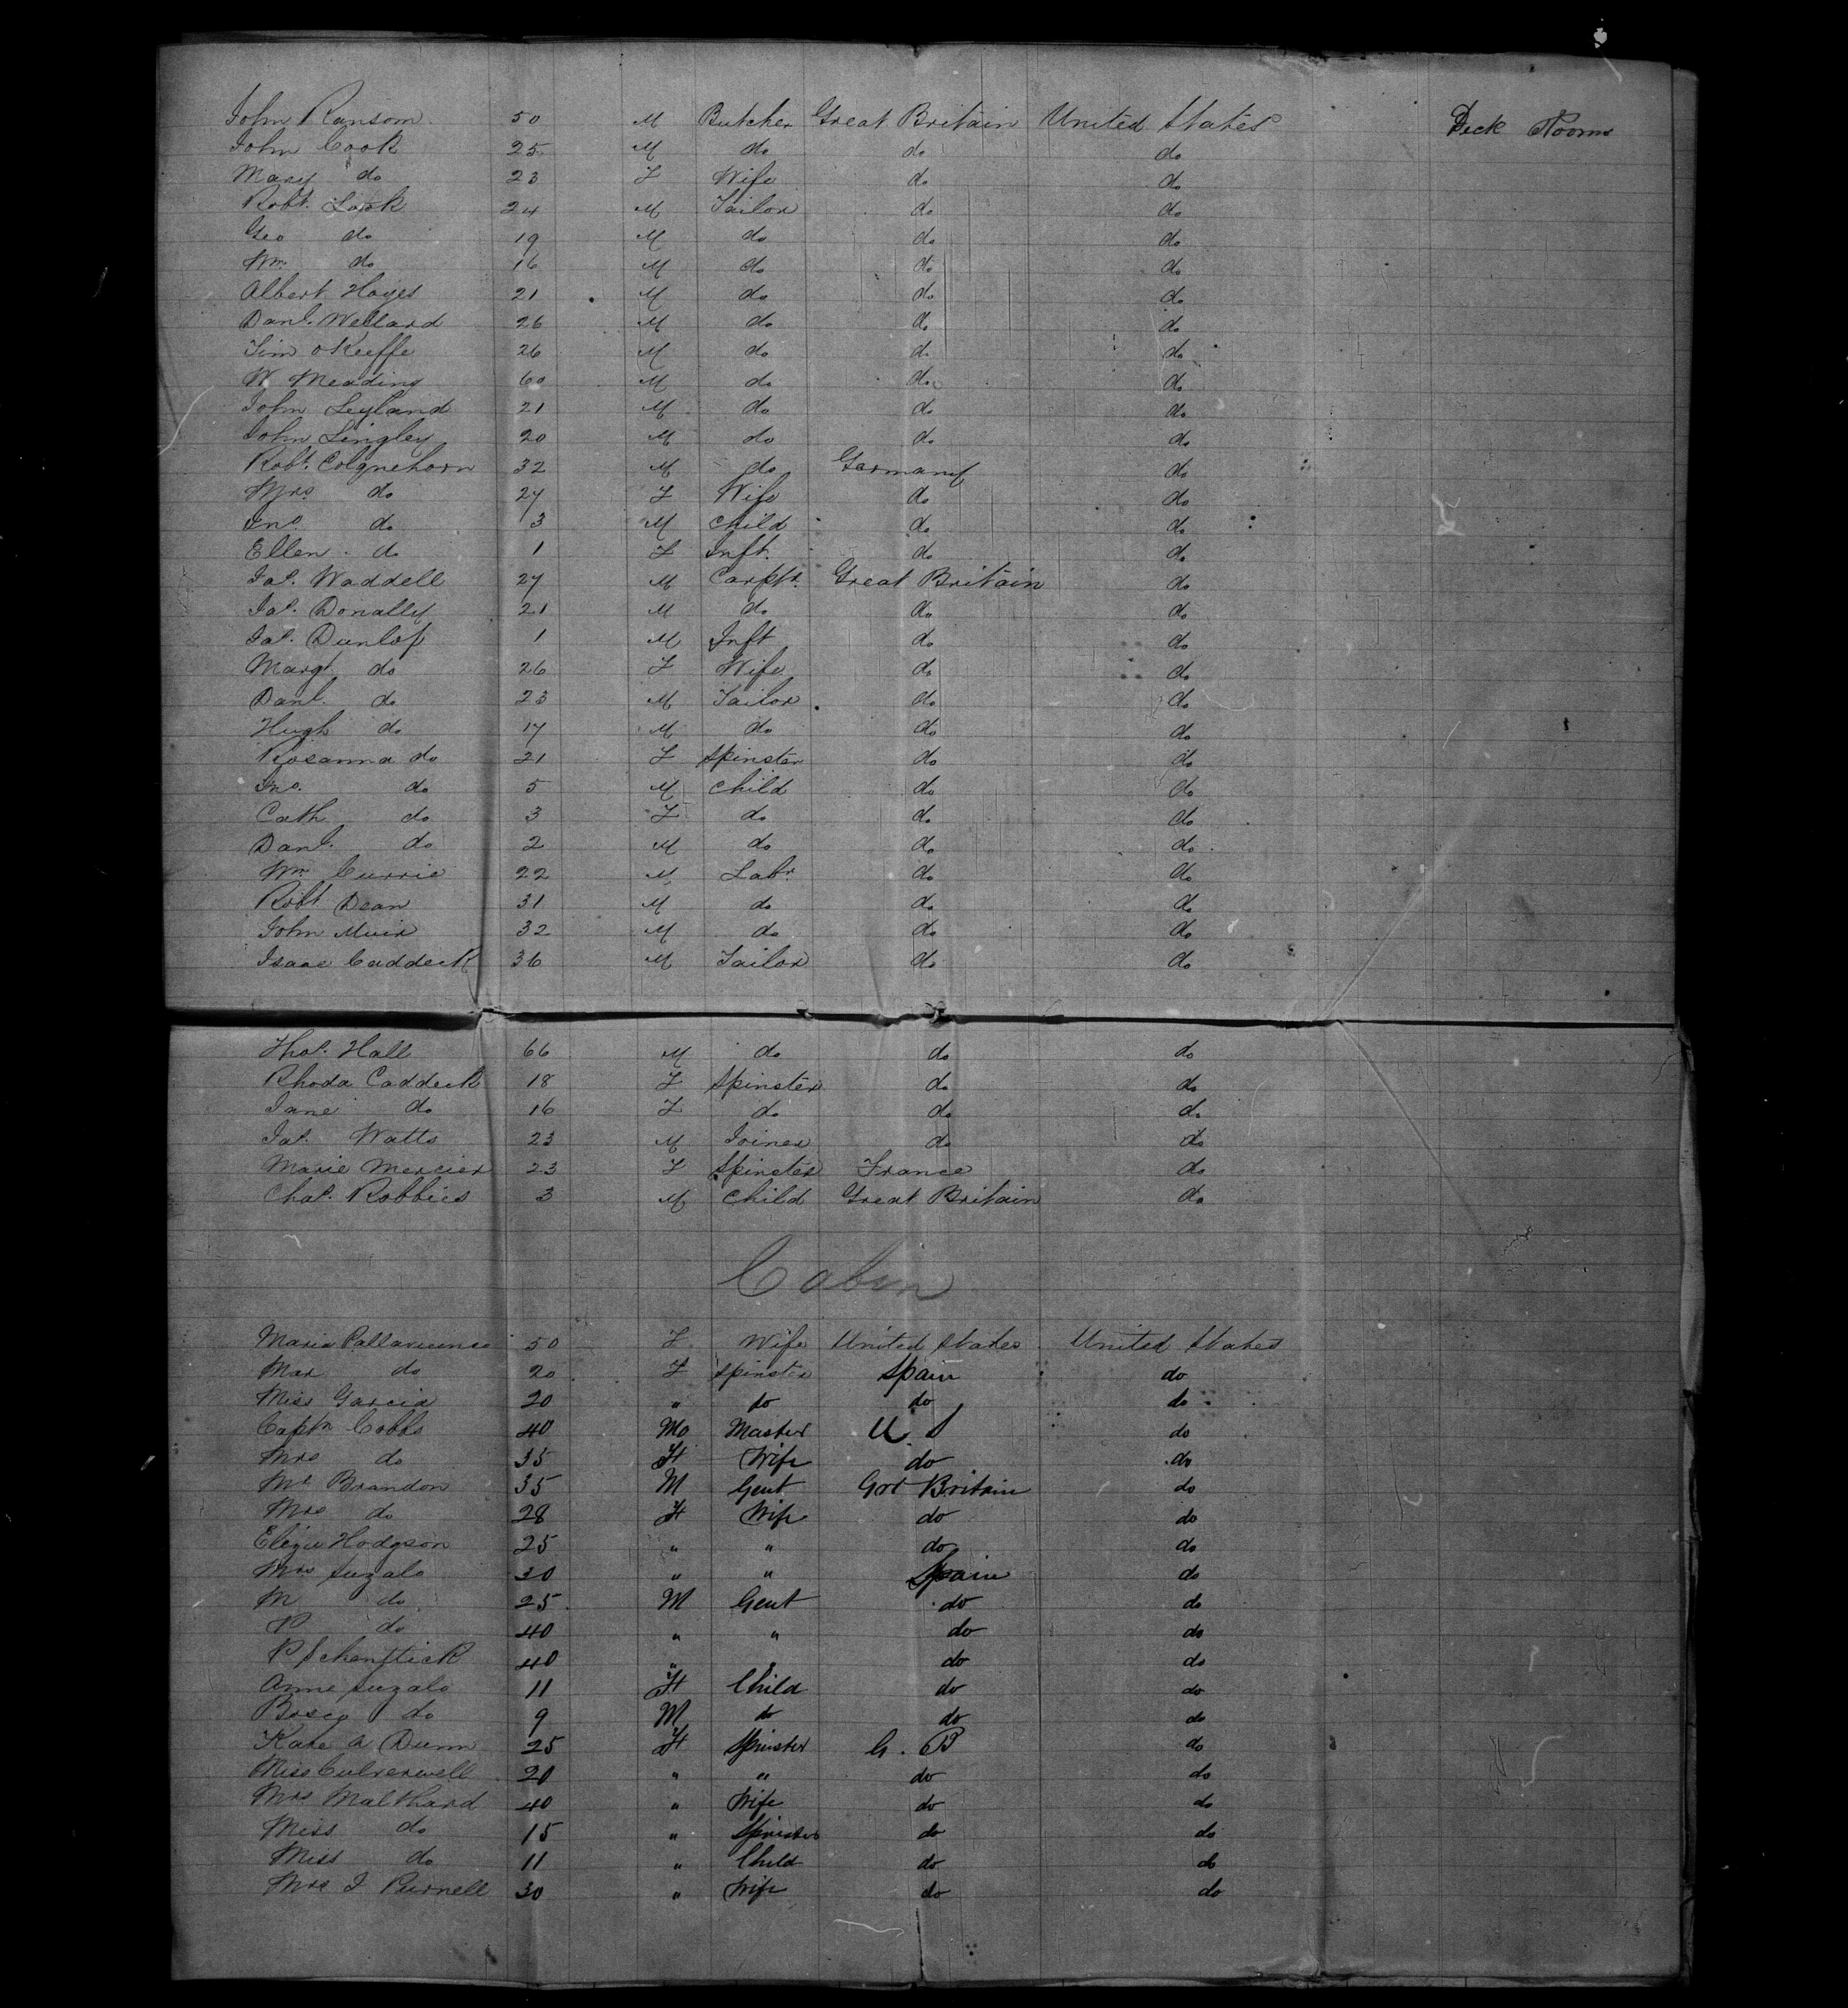 John Ransom 50 M Butcher Great Britain United States Deck Rooms
John Cook 25 M do do do
Mary do 23 F Wife do do
Robt. Lark 24 M Tailor do do
Geo do 19 M do do do
Wm. do 16 M do do do
Albert Hayes 21 M do do do
Danl. Wellard 26 M do do do
Tim O Keeffe 26 M do do do
W Meading 60 M do do do
John Leyland 21 M do do do
John Lingley 20 M do do do
Robt. Colgnehorn 32 M do Germany do
Mrs. do 27 F Wife do do
Jno. do 3 M Child do do
Ellen do 1 F Inft. do do
Jas. Waddell 27 M Carptr. Great Britain do
Jas. Donally 21 M do do do
Jas. Dunlop 1 M Inft do do
Margt. do 26 F Wife do do
Danl. do 23 M Tailor do do
Hugh do 17 M do do do
Rosanna do 21 F Spinster do do
Jno. do 5 M Child do do
Cath do 3 F do do do
Danl. do 2 M do do do
Wm Currie 22 M Labr do do
Robt Dean 31 M do do do
John Muir 32 M do do do
Isaac Caddeck 36 M Tailor do do
Thos. Hall 66 M do do do
Rhoda Caddeck 18 F Spinster do do
Jane do 16 F do do do
Jas. Watts 23 M Joiner do do
Marie Mercier 23 F Spinster France do
Chas. Robbies 3 M Child Great Britain do
Cabin
Maria 50 F Wife United States United States
Mar do 20 F Spinster Spain do
Miss Garcia 20 " do do do
Captn Cobbs 40 Mo Master U S do
Mrs do 35 F Wife do do
Mr Brandon 35 M Gent Grt Britain do
Mrs do 28 F Wife do do
Eliza Hodgson 25 " " do do
Mrs Suzalo 30 " " Spain do
M do 25 M Gent do do
P do 40 " " do do
P Schenflick 40 " " do do
Anne Suzalo 11 F Child do do
Bosco do 9 M do do do
Kate A Dunn 25 F Spinster G. B do
Miss Culverwell 20 " " do do
Mrs Malthard 40 " Wife do do
Miss do 15 " Spinster do do
Miss do 11 " Child do do
Mrs J Purnell 30 " Wife do do